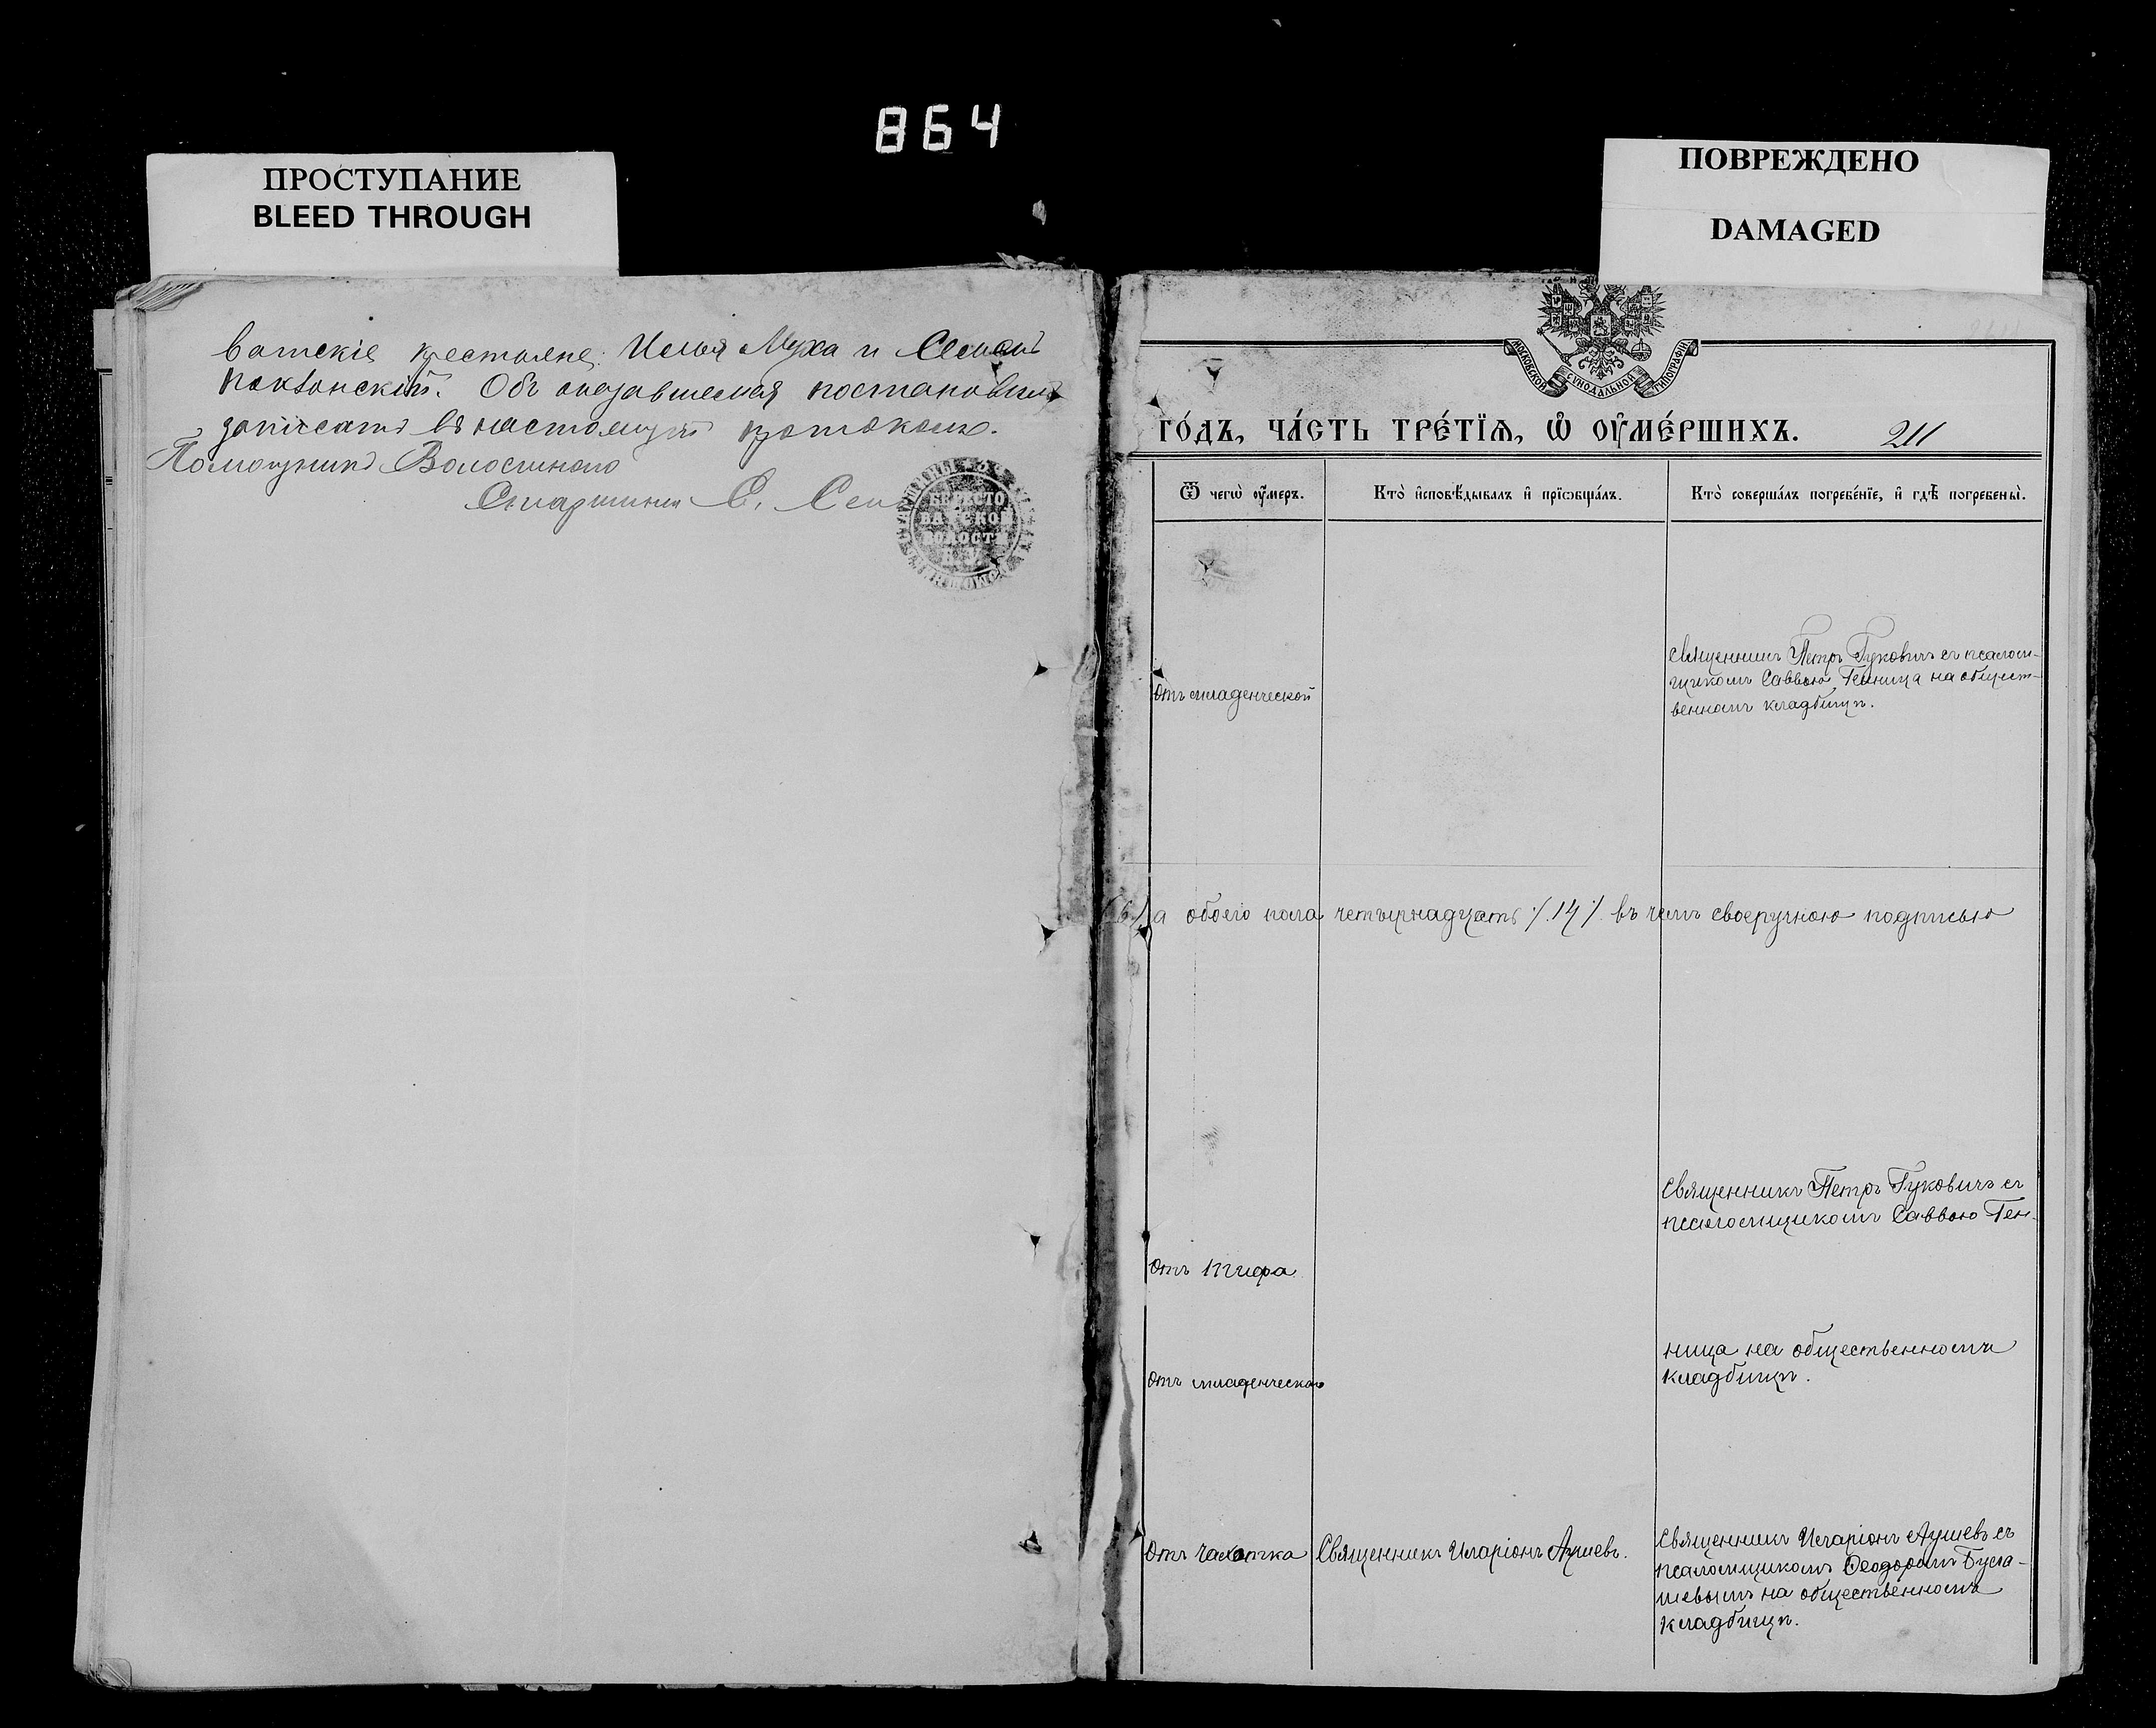 864
ПРОСТУПАНИЕ
BLEED THROUGH
ПОВРЕЖДЕНО
DAMAGED
ватскіе крестьяне: Илья Муха и Семенъ
Об оказавшемся
записать въ настоящій протоколъ.
Помощникъ Волостного
Старшины С.
БЕРЕСТО
ВАТСКОЙ
ВОЛОСТИ
МОСКОВСКОЙ СѴНОДАЛЬНОЙ ТИПОГРАФІИ
ГО́ДЪ, ЧА́СТЬ ТРЕ́ТЇѦ, Ѽ ОУ҆МЕ́РШИХЪ. 211
Ѿ чегѡ̀ оу҆́меръ.
Кто̀ и҆сповѣ́дывалъ и҆ прїѡбща́лъ.
Кто̀ соверша́лъ погребе́нїе, и҆ гдѣ̀ погребены̀.
Отъ младенческой
Священникъ Петръ Гуковичъ съ псалом-
щикомъ Саввою Геница на общест-
венномъ кладбищѣ.
а обоего пола четырнадцать ٪.14٪. въ чемъ своеручною подписью
Священникъ Петръ Гуковичъ съ
псаломщикомъ Саввою Ген-
Отъ тифа
ница на общественномъ
кладбищѣ.
Отъ младенческой
Отъ чахотка
Священникъ Иларіонъ
Священникъ Иларіонъ съ
псаломщикомъ Ѳеодоромъ Бугла-
шевымъ на общественномъ
кладбищѣ.